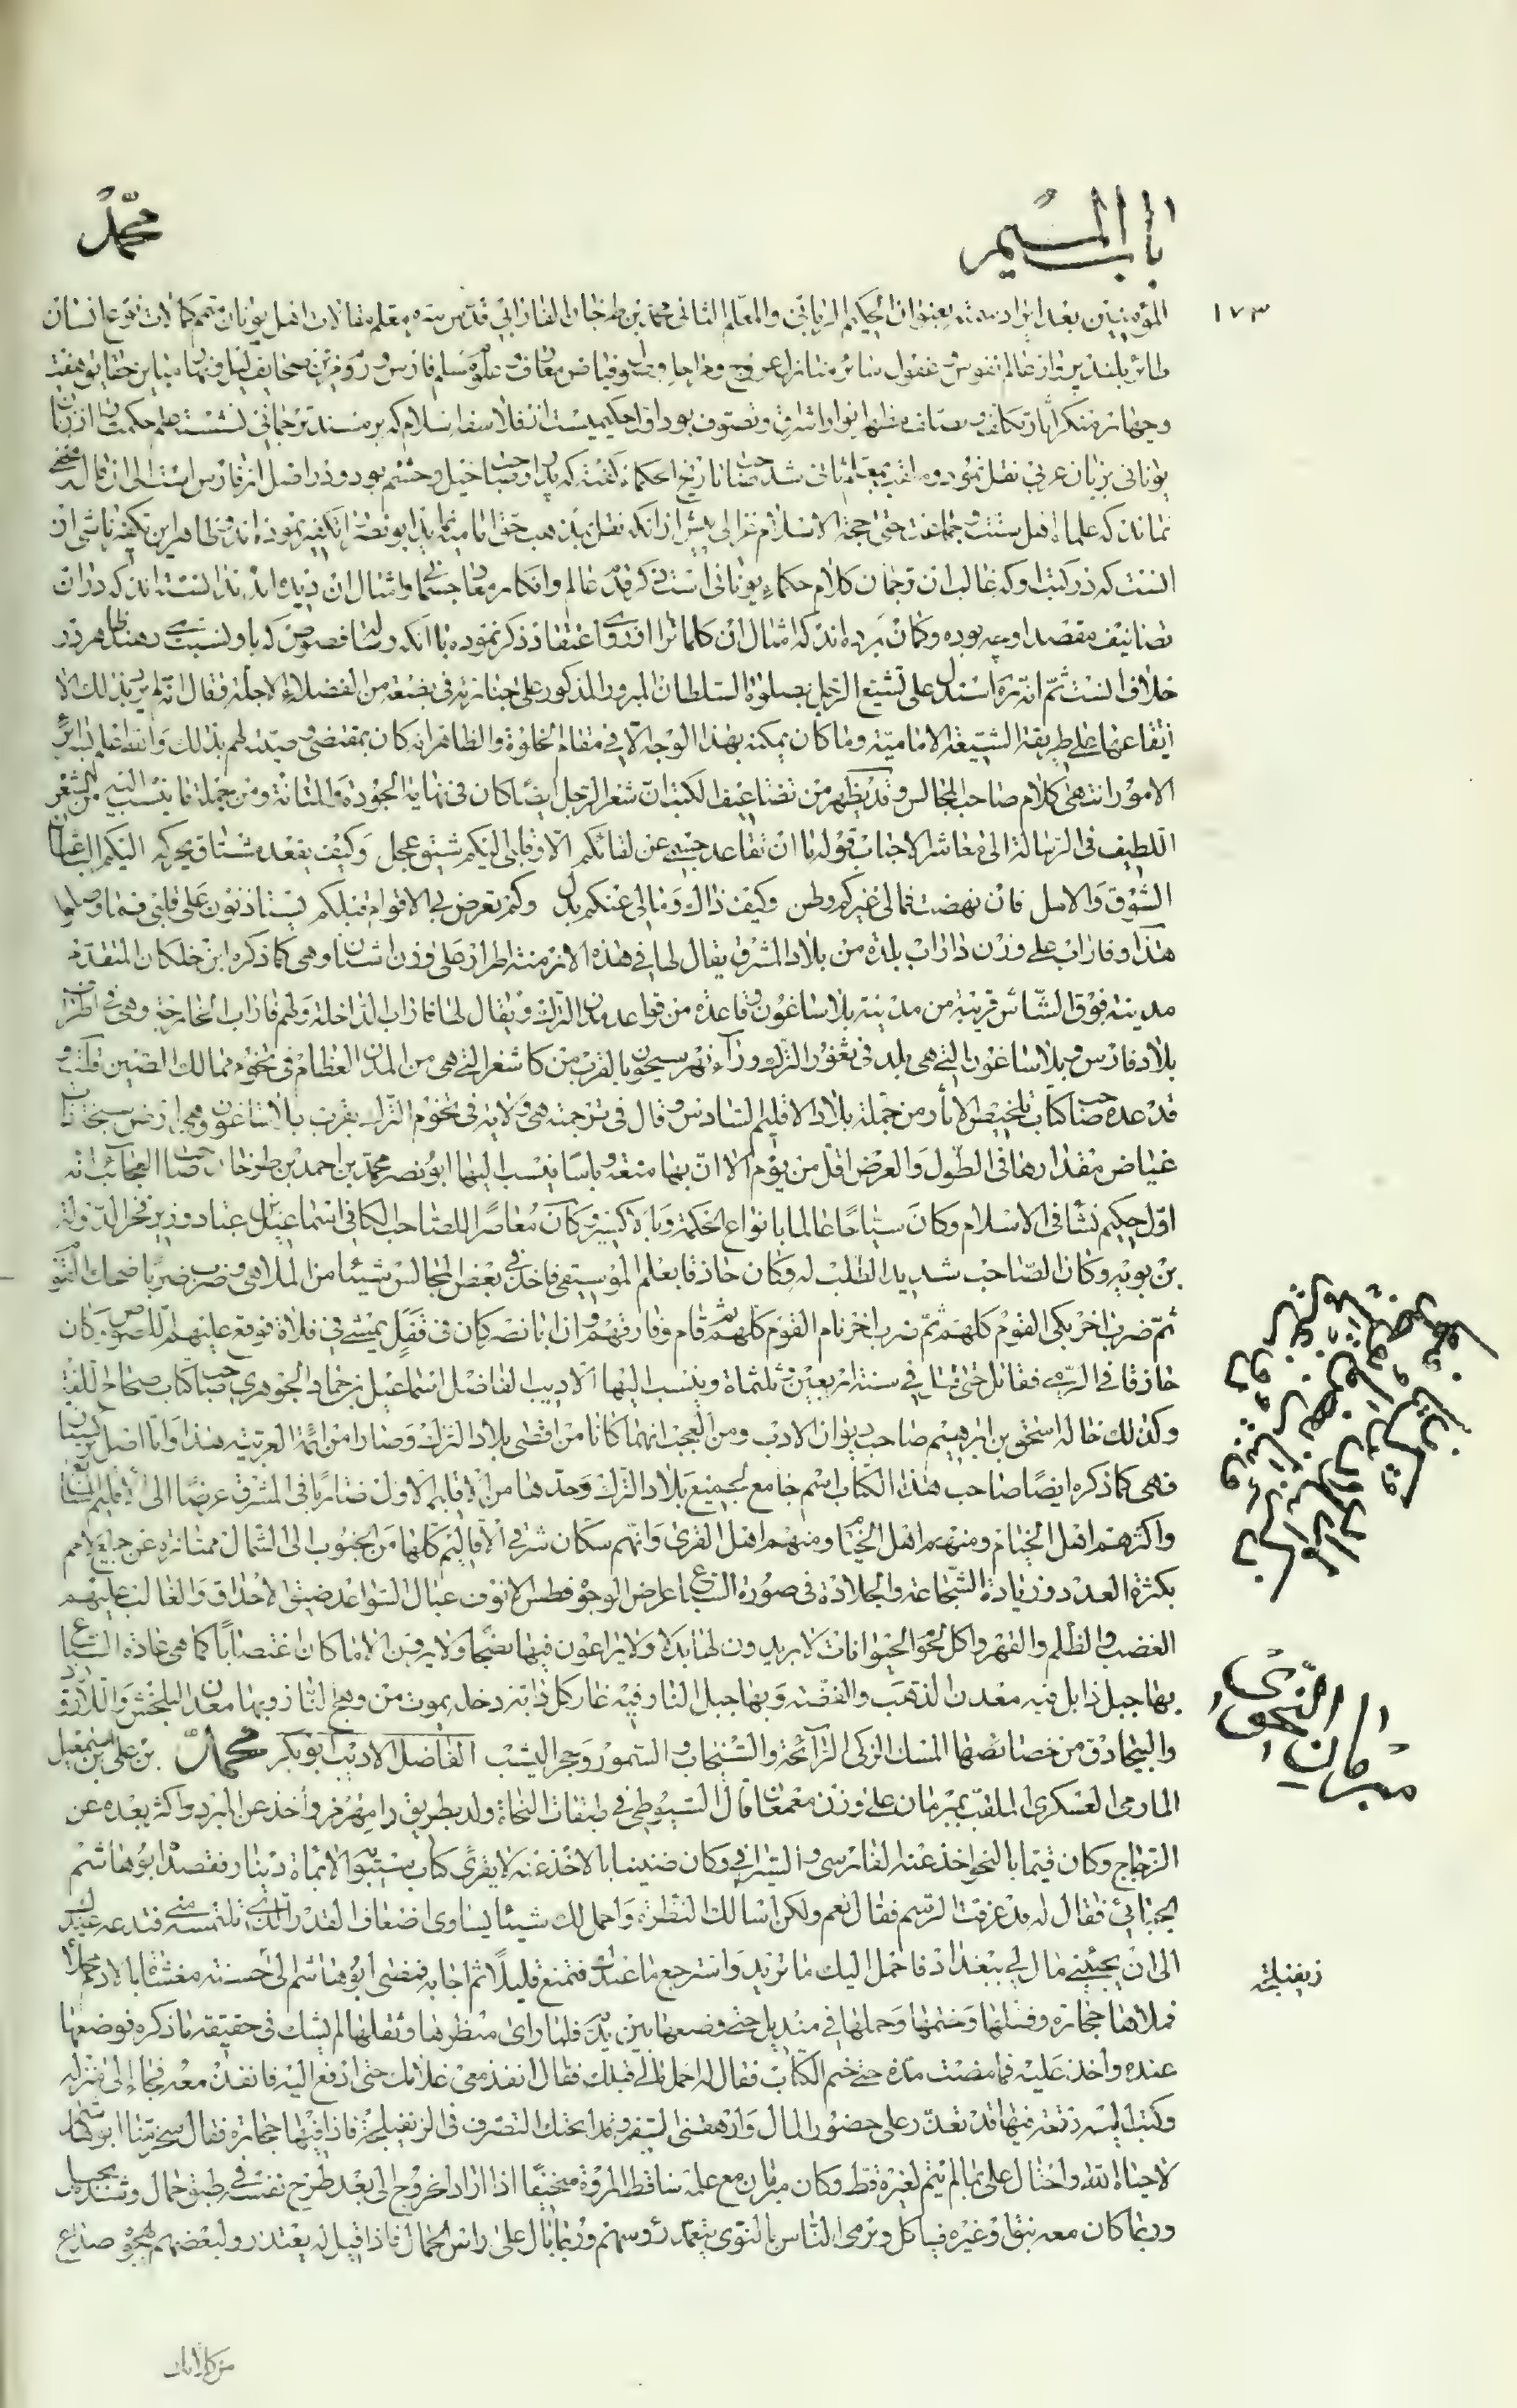 باب الميم
محمد
١٧٣
المؤمنين بعد ايراده له بعنوان الحكيم الرباني والمعلم الثاني محمد بن طرخان الفارابي قدس سره معلم مقالات اهل يونان متمم كمالات نوع انسان
طائر بلند پرواز عالم نفوس و عقول سائر منازل عروج و
وجهانرا منكر اباز تكلف و صلف مظهر انوار اشراق و تصوف بود اول حكيميست از فلاسفه اسلام كه بر مسند ترجماني نشسته علم حكمت از زبان
يوناني بزبان عربي نقل نمود و ملقب بمعلم ثاني شد صاحب تاريخ الحكماء گفته كه پدر او صاحب خيل و حشم بود و در اصل از فارس است الى ان قال مخفي
نماند كه علماء اهل سنت و جماعت حتى حجة الاسلام غزالي پيش از انكه نقل بمذهب حق اماميه نمايد ابو نصر را تكفير نموده اند و ظاهرا اين تكفير ناشي از
انست كه در كتب او كه غالب ان ترجمان كلام حكماء يوناني است ذكر قدم عالم و انكار معاد جسماني و امثال ان ديده اند ندانسته اند كه در ان
تصانيف مقصد او چه بوده و گمان برده اند كه امثال ان كلمات را از روي اعتقاد ذكر نموده با آنكه رساله فصوص كه باو نسبت دهند ظاهر در
خلاف انست ثم انه ره استدل على تشيع الرجل بصلوة السلطان المبرور المذكور على جنازته في بضعة من الفضلاء الاجلة فقال انه لم يرد بذلك الا
ايقاعها على طريقة الشيعة الامامية وما كان يمكنه بهذا الوجه الا في مقام الخلوة والظاهر انه كان بمقتضى وصيته لهم بذلك والله عليم بسرائر
الامور انتهى كلام صاحب المجالس وقد يظهر من تضاعيف الكتب ان شعر الرجل ايضا كان في نهاية الجودة والمتانة ومن جملة ما ينسب اليه من الشعر
اللطيف في الرسالة الى معاشر الاحباب قوله ما ان تقاعد جسمي عن لقائكم الا وقلبي اليكم شيق عجل وكيف يقعد مشتاق يحركه اليكم الباعثان
الشوق والامل فان نهضت فمالي غيركم وطن وكيف ذاك ومالي عنكم بدل وكم تعرض لي الاقوام قبلكم يستاذنون على قلبي فما وصلوا
هذا وفاراب على وزن داراب بلدة من بلاد المشرق يقال لها في هذه الازمنة اطرار على وزن اشنان وهي كما ذكره ابن خلكان المتقدم
مدينة فوق الشاش قريبة من مدينة بلاساغون وقاعدة من قواعد مدن الترك ويقال لها فاراب الداخلة ولهم فاراب الخارجة وهي في اطراف
بلاد فارس وبلاساغون التي هي بلد في ثغور الترك وراء نهر سيحون بالقرب من كاشغر التي هي من المدن العظام في تخوم ممالك الصين قلت و
قد عده صاحب كتاب تلخيص الاثار من جملة بلاد الاقليم السادس وقال في ترجمته هي ولاية في تخوم الترك بقرب بلاساغون وهي ارض سبخة ذات
غياض مقدارها في الطول والعرض اقل من يوم الا ان بها منعة وباسا ينسب اليها ابو نصر محمد بن احمد بن طرخان صاحب العجائب انه
اول حكيم نشأ في الاسلام وكان سياحا عالما بانواع الحكمة وكان معاصرا للصاحب الكافي اسماعيل بن عباد وزير فخر الدولة
بن بويه وكان الصاحب شديد الطلب له وكان حاذقا بعلم الموسيقي فاخذ في بعض المجالس شيئا من الملاهي وضرب ضربا ضحك القوم
ثم ضرب اخر بكى القوم كلهم ثم ضرب اخر نام القوم كلهم ثم قام وفارقهم وان ابا نصر كان في قفل يمشي في فلاة فوقع عليهم اللصوص وكان
حاذقا في الرمي فقاتل حتى قتل في سنة اربعين وثلثماة وينسب اليها الاديب الفاضل اسماعيل بن حماد الجوهري صاحب كتاب صحاح اللغة
وكذلك خاله اسحق بن ابرهيم صاحب ديوان الادب ومن العجب انهما كانا من اقصى بلاد الترك وصارا من ائمة العربية هذا واما اصل تركستان
فهي كما ذكره ايضا صاحب هذا الكتاب اسم جامع لجميع بلاد الترك وحدها من الاقليم الاول ضاربا في المشرق عرضا الى الاقليم السابع
واكثرهم اهل الخيام ومنهم اهل القرى وانهم سكان شرقي الاقاليم كلها من الجنوب الى الشمال ممتازة عن جميع الامم
بكثرة العدد وزيادة الشجاعة والجلادة في صورة السباع عراض الوجوه فطس الانوف عبال السواعد ضيق الاخلاق والغالب عليهم
الغضب والظلم والقهر واكل لحوم الحيوانات لا يريدون لها بدلا ولا يراعون فيها نضجا ولا يرون الا ما كان اغتصابا كما هي عادة السباع
بها جبل زابل فيه معدن الذهب والفضة وبها جبل النار وفيه غار كل دابة دخله يموت من وهج النار وبها معادن البلخش واللازورد
والبيجادق من خصائصها المسك الزكي الرائحة والسنجاب والسمور وحجر اليشب الفاضل الاديب ابو بكر محمد بن علي بن اسمعيل
العسكري الملقب بمبرمان على وزن مغمعان قال السيوطي في طبقات النحاة ولد بطريق رامهرمز واخذ عن المبرد واكثر بعده عن
الزجاج وكان قيما بالنحو اخذ عنه الفارسي والسيرافي وكان ضنينا بالاخذ عنه لا يقرئ كتاب سيبويه الا بماة دينار فقصده ابو هاشم
الجبائي فقال له قد عرفت الرسم فقال نعم ولكن اسالك النظرة واحمل لك شيئا يساوي اضعاف القدر الذي تلتمسه مني فتدعه عندك
الى ان يجيئني مال لي ببغداد فاحمل اليك ما تريد واسترجع ما عندك فتمنع قليلا ثم اجابه فمضى ابو هاشم الى حسنة مغشاة بالادم
فملاها حجارة وقفلها وختمها وحملها في منديل حتى وضعها بين يديه فلما راى منظرها وثقلها لم يشك في حقيقة ما ذكره فوضعها
عنده واخذ عليه فما مضت مدة حتى ختم الكتاب فقال له احمل مالي قبلك فقال انفذ معي غلامك حتى ادفع اليه فانفذه معه فجاء الى منزله
وكتب اليه رقعة فيها قد تعذر على حضور المال وارهقني السفر وقد ابحتك التصرف في الزنفيلجة فاذا فيها حجارة فقال سخر منا ابو هاشم
لا حياه الله واحتال على بما لم يتم لغيره قط وكان مبرمان مع علمه ساقط المروة سخيفا اذا اراد الخروج الى بعد طرح نفسه في طبق حمال وشده بحبل
وربما كان معه نبق وغيره فياكل ويرمي الناس بالنوى يتعمد رؤسهم وربما بال على راس الحمال فاذا قيل له يعتذر ولبعضهم يهجوه صداع
مبرمان النحوى
زنفيلجة
من كلامك